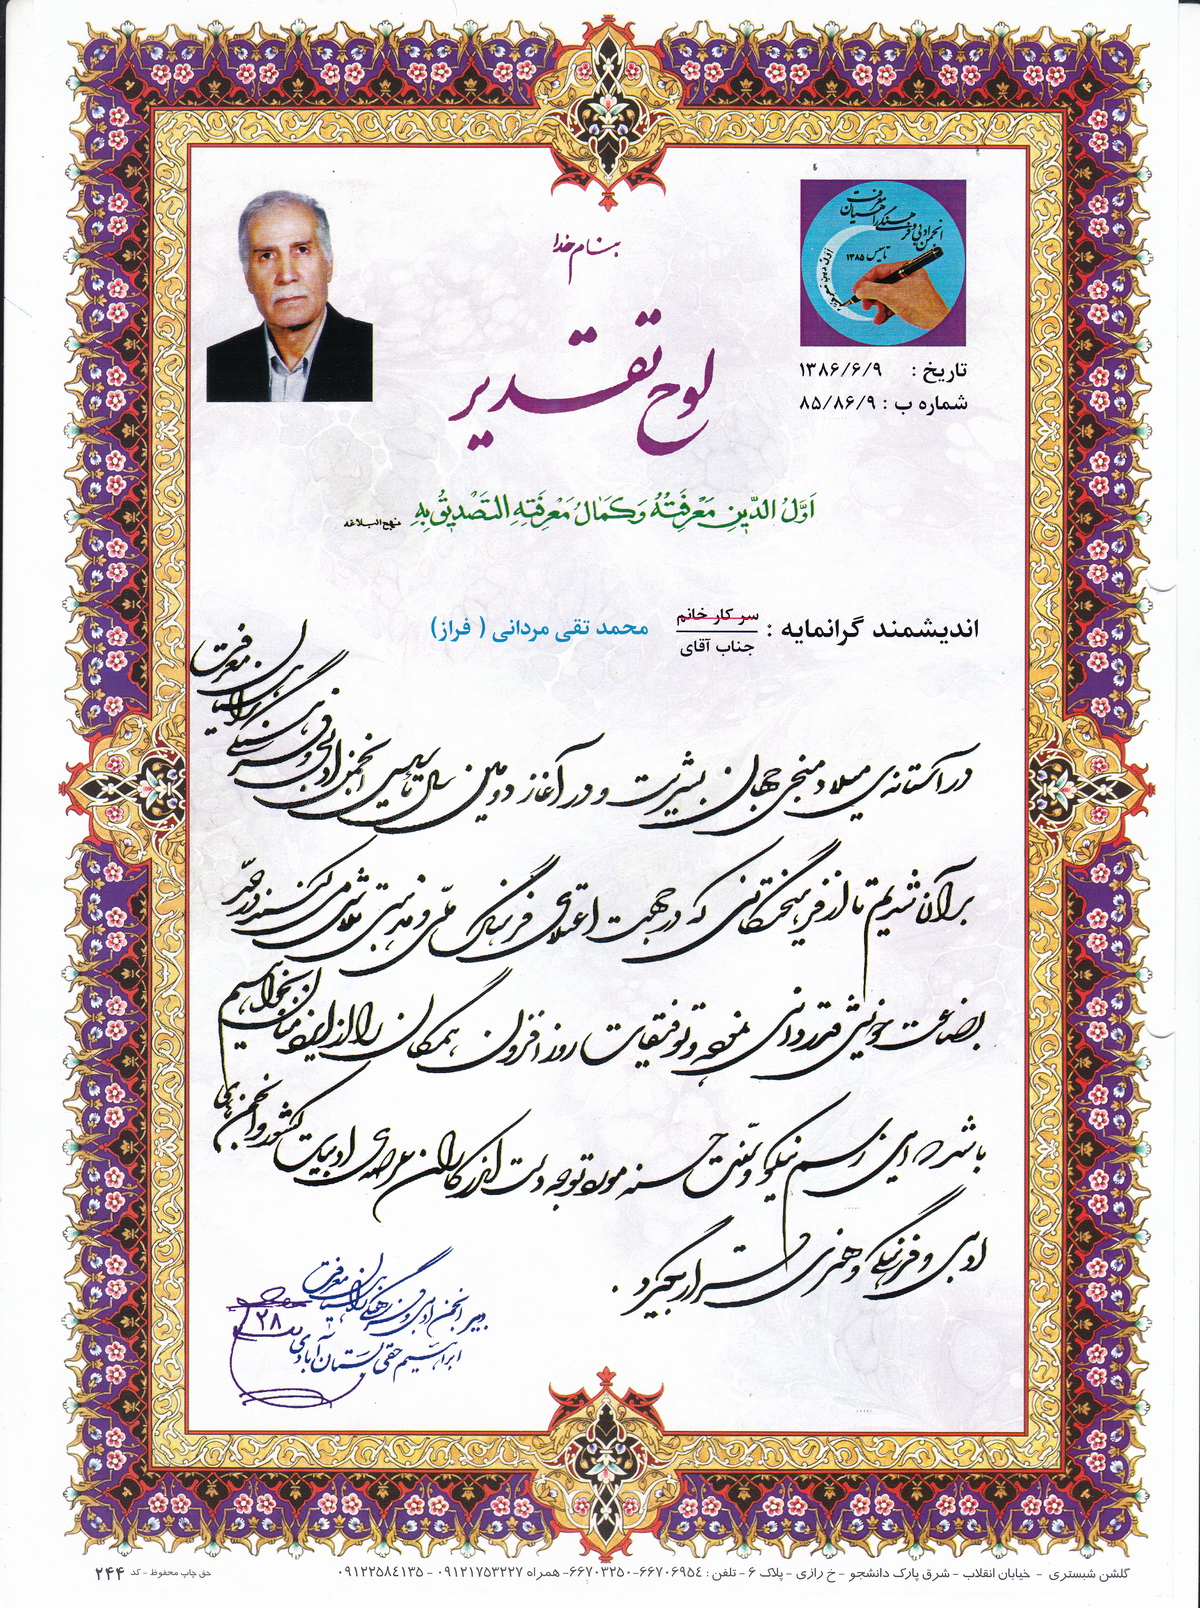 بنام خدا
انجمن ادبی و فرهنگی راهیان معرفت
تاسیس ۱۳۸۵
لوح تقدیر
تاریخ : ۱۳۸۶/۶/۹
شماره ب : ۸۵/۸۶/۹
اَوَّلُ الدّینِ مَعْرِفَتُهُ وَ کَمٰالُ مَعْرِفَتِهِ التَصْدیقُ بِهِ نهج البلاغه
اندیشمند گرانمایه : سرکار خانم
جناب آقای
محمد تقی مردانی ( فراز)
در آستانه‌ی میلاد منجی جهان بشریت و در آغاز دومین سال تأسیس انجمن ادبی و فرهنگی راهیان معرفت
بر آن شدیم تا از فرهیختگانی که در جهت اعتلای فرهنگ ملّی و مذهبی تلاش می کنند در حدّ
بضاعت خویش قدردانی نموده و توفیقات روز افزون همگان را از ایزد منان بخواهیم
باشد این رسم نیکو و سنّت حسنه مورد توجه دست اندرکاران عرصه‌ی ادبیات کشور و انجمن‌های
ادبی و فرهنگی و هنری قرار بگیرد .
دبیر انجمن ادبی و فرهنگی راهیان معرفت
ابراهیم حقی بستان آبادی
۲۸
گلشن شبستری - خیابان انقلاب - شرق پارک دانشجو - خ رازی - پلاک ۶ - تلفن : ۶۶۷۰۶۹۵۴-۶۶۷۰۳۲۵۰- همراه ۰۹۱۲۱۷۵۳۲۲۷ - ۰۹۱۲۲۵۸۴۱۳۵
حق چاپ محفوظ - کد ۲۴۴